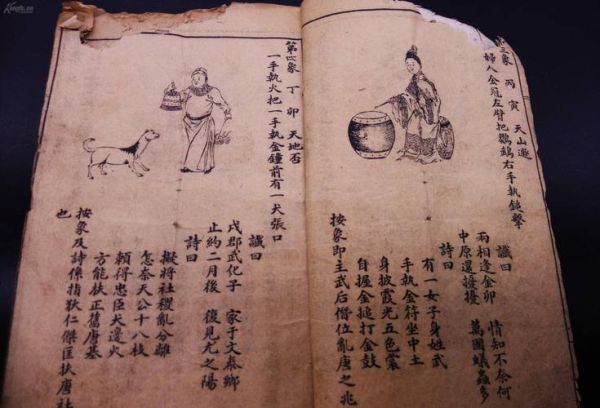 三象 丙寅 天山遯
婦人金冠左臂把鸚鵡右手執鎚擊
讖曰
兩相逢金卯 情知不奈何
中原還擾擾 萬國蟻蟲多
詩曰
有一女子身姓武
手執金符坐中土
身披霞光五色裳
自握金鎚打金鼓
按象即主武后僭位亂唐之兆
第四象 丁卯 天地否
一手執火把一手執金鐘前有一犬張口
讖曰
戌郡武化子 家于文泰鄉
止約二月後 復見尤之陽
詩曰
擬將社稷亂分離
怎奈天公十八枝
賴得忠臣犬邊火
方能扶正舊唐基
按象及詩係指狄仁傑匡扶唐社
也